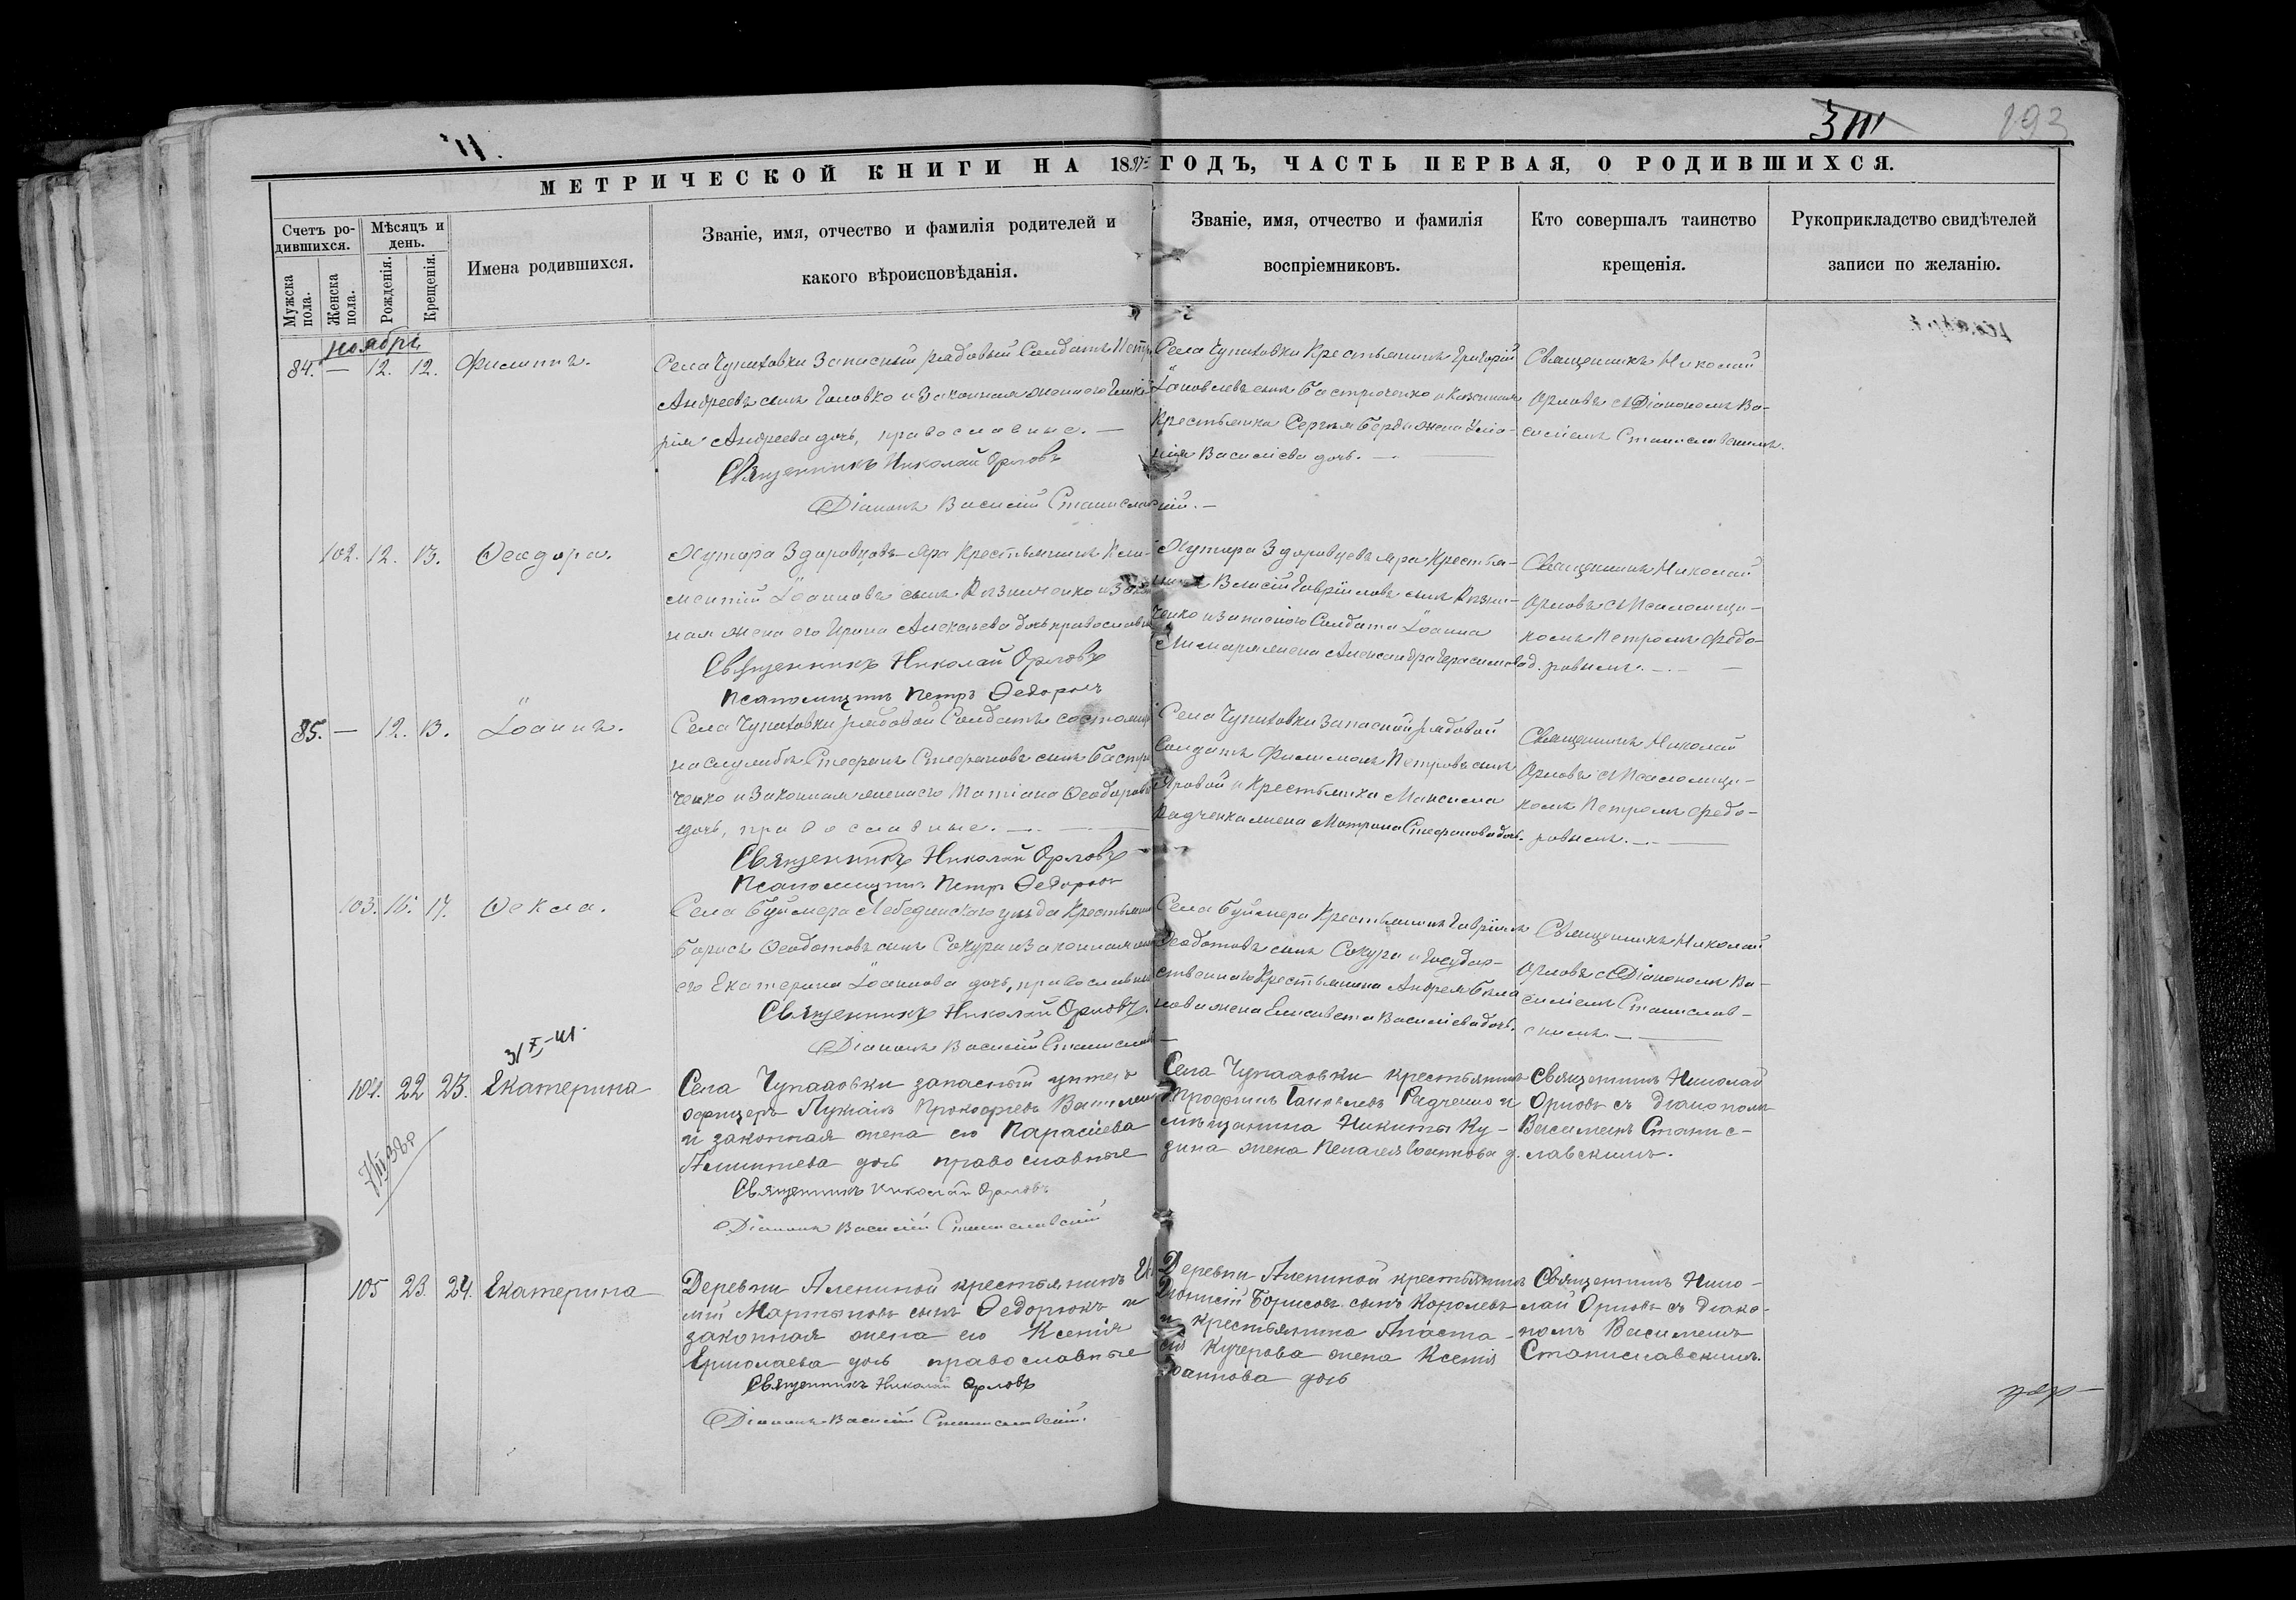 193
МЕТРИЧЕСКОЙ КНИГИ НА 1897 ГОДЪ, ЧАСТЬ ПЕРВАЯ, О РОДИВШИХСЯ.
Счетъ родившихся.
Мужска пола.
Женска пола.
Мѣсяцъ и день.
Рожденія.
Крещенія.
Имена родившихся.
Званіе, имя, отчество и фамилія родителей и
какого вѣроисповѣданія.
Званіе, имя, отчество и фамилія
воспріемниковъ.
Кто совершалъ таинство
крещенія.
Рукоприкладство свидѣтелей
записи по желанію.
ноябрь
84. — 12. 12. Филиппъ.
Села Чупаховки Запасный рядовый Солдатъ Петръ
Андреевъ сынъ Головко и Законная жена его Глике-
рія Андреева дочь, православные. —
Священникъ Николай Орловъ
Діаконъ Василій Станиславскій. —
Села Чупаховки Крестьянинъ Григорій
Іаковлевъ сынъ
Крестьянина Сергѣя жена
Василіева дочь. —
Священникъ Николай
Орловъ съ Діакономъ Ва-
силіемъ Станиславскимъ.
102. 12. 13. Ѳеодора.
Хутора Здоровцовъ-Яра Крестьянинъ Кли-
ментій Іоанновъ сынъ и Закон-
ная жена его Ирина Алексѣева дочь православные
Священникъ Николай Орловъ
Псаломщикъ Петръ Ѳедоровъ
Хутора Здоровцевъ Яра Крестья-
нинъ Гавріиловъ сынъ
и запаснаго Солдата Іоанна
жена Александра Герасимова д.
Священникъ Николай
Орловъ съ Псаломщи-
комъ Петромъ Ѳедо-
ровымъ. —
85. — 12. 13. Іоаннъ.
Села Чупаховки рядовой Солдатъ состоящій
на службѣ Стефанъ Стефановъ сынъ
и Законная жена его Татіана Ѳеодорова
дочь, православные. —
Священникъ Николай Орловъ
Псаломщикъ Петръ Ѳедоровъ
Села Чупаховки Запасной рядовой
Солдатъ Филимонъ Петровъ сынъ
Яровой и Крестьянина Максима
Радченка жена Матрона Стефанова дочь.
Священникъ Николай
Орловъ съ Псаломщи-
комъ Петромъ Ѳедо-
ровымъ. —
103. 16. 17. Ѳекла.
Села Буймера Лебединскаго уѣзда Крестьянинъ
Борисъ Ѳеодотовъ сынъ Сокура и Законная жена
его Екатерина Іоаннова дочь, православные
Священникъ Николай Орловъ.
Діаконъ Василій Станиславскій
Села Буймера Крестьянинъ Гавріилъ
Ѳеодотовъ сынъ Сокура и Государ-
ственнаго Крестьянина Андрея
жена Елисавета Василіева дочь.
Священникъ Николай
Орловъ съ Діакономъ Ва-
силіемъ Станислав-
скимъ. —
104. 22 23. Екатерина
Села Чупаховки запасный унтеръ
офицеръ Лукіанъ Прокофіевъ
и законная жена его Параскева
дочь православные
Священникъ Николай Орловъ
Діаконъ Василій Станиславскій
Села Чупаховки крестьянинъ
Трофимъ Іаковлевъ Радченко и
мѣщанина Никиты Ку-
зина жена Пелагея Іоаннова д.
Священникъ Николай
Орловъ съ діакономъ
Василіемъ Станис-
лавскимъ.
105 23. 24. Екатерина
Деревни Алениной крестьянинъ
Мартыновъ сынъ Ѳедорюкъ и
законная жена его Ксенія
Ермолаева дочь православные
Священникъ Николай Орловъ
Діаконъ Василій Станиславскій.
Деревни Алениной крестьянинъ
Діонисій Борисовъ сынъ Королевъ
и крестьянина
Кучерова жена Ксенія
Іоаннова дочь
Священникъ Нико-
лай Орловъ съ діако-
номъ Василіемъ
Станиславскимъ.